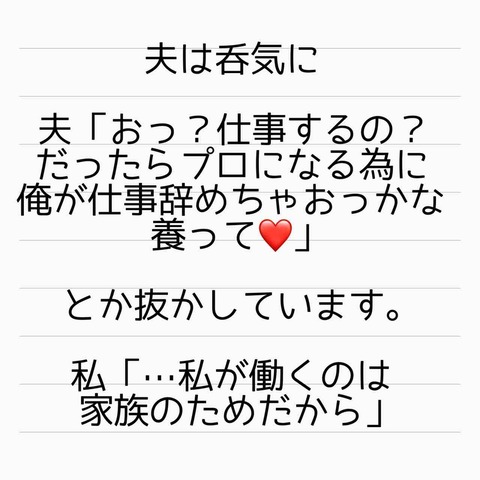 夫は呑気に
夫「おっ？仕事するの？
だったらプロになる為に
俺が仕事辞めちゃおっかな
養って❤️」
とか抜かしています。
私「…私が働くのは
家族のためだから」